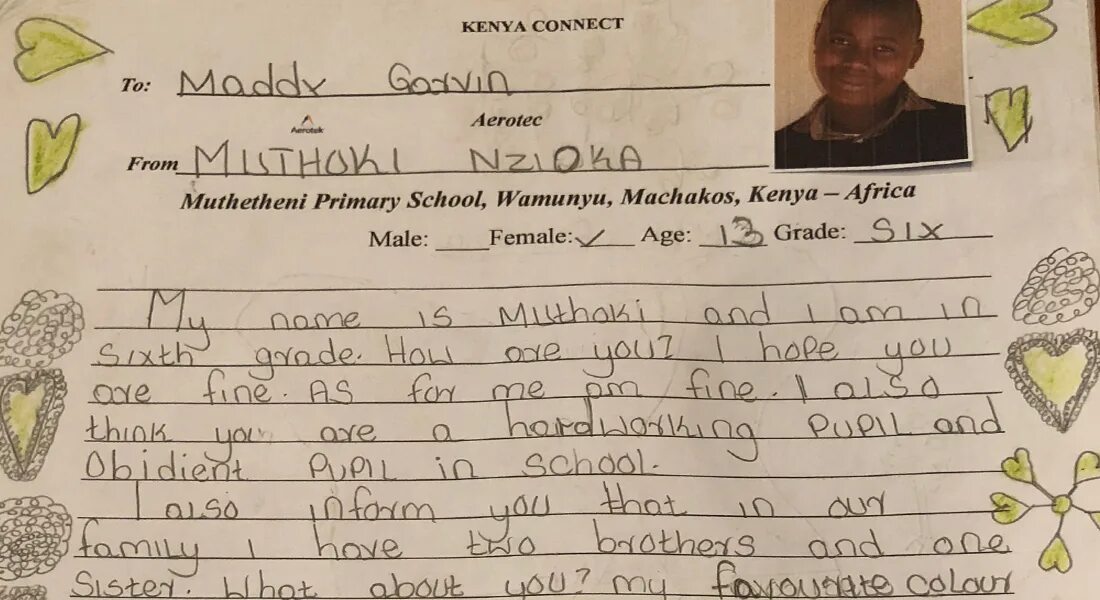 KENYA CONNECT
To: Maddy Garvin
Aerotek Aerotec
From MUTHOKI NZIOKA
Muthetheni Primary School, Wamunyu, Machakos, Kenya – Africa
Male: Female: ✓ Age: 13 Grade: SIX
My name is Muthoki and I am in
sixth grade. How are you? I hope you
are fine. AS for me am fine. I also
think you are a hardworking PUPIL and
Obidient PUPIL in school.
I also inform you that in our
family I have two brothers and one
Sister. What about you? my favourate colour